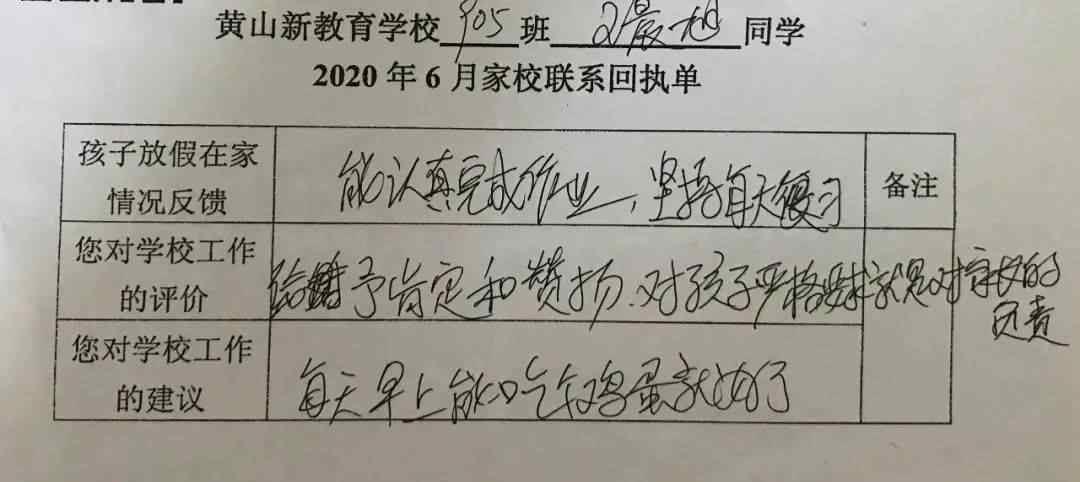 黄山新教育学校905班 晨旭 同学
2020年6月家校联系回执单
孩子放假在家
情况反馈
能认真完成作业，坚持每天复习
备注
您对学校工作
的评价
给予肯定和赞扬.对孩子严格要求就是对家长的
负责
您对学校工作
的建议
每天早上能吃个鸡蛋就好了